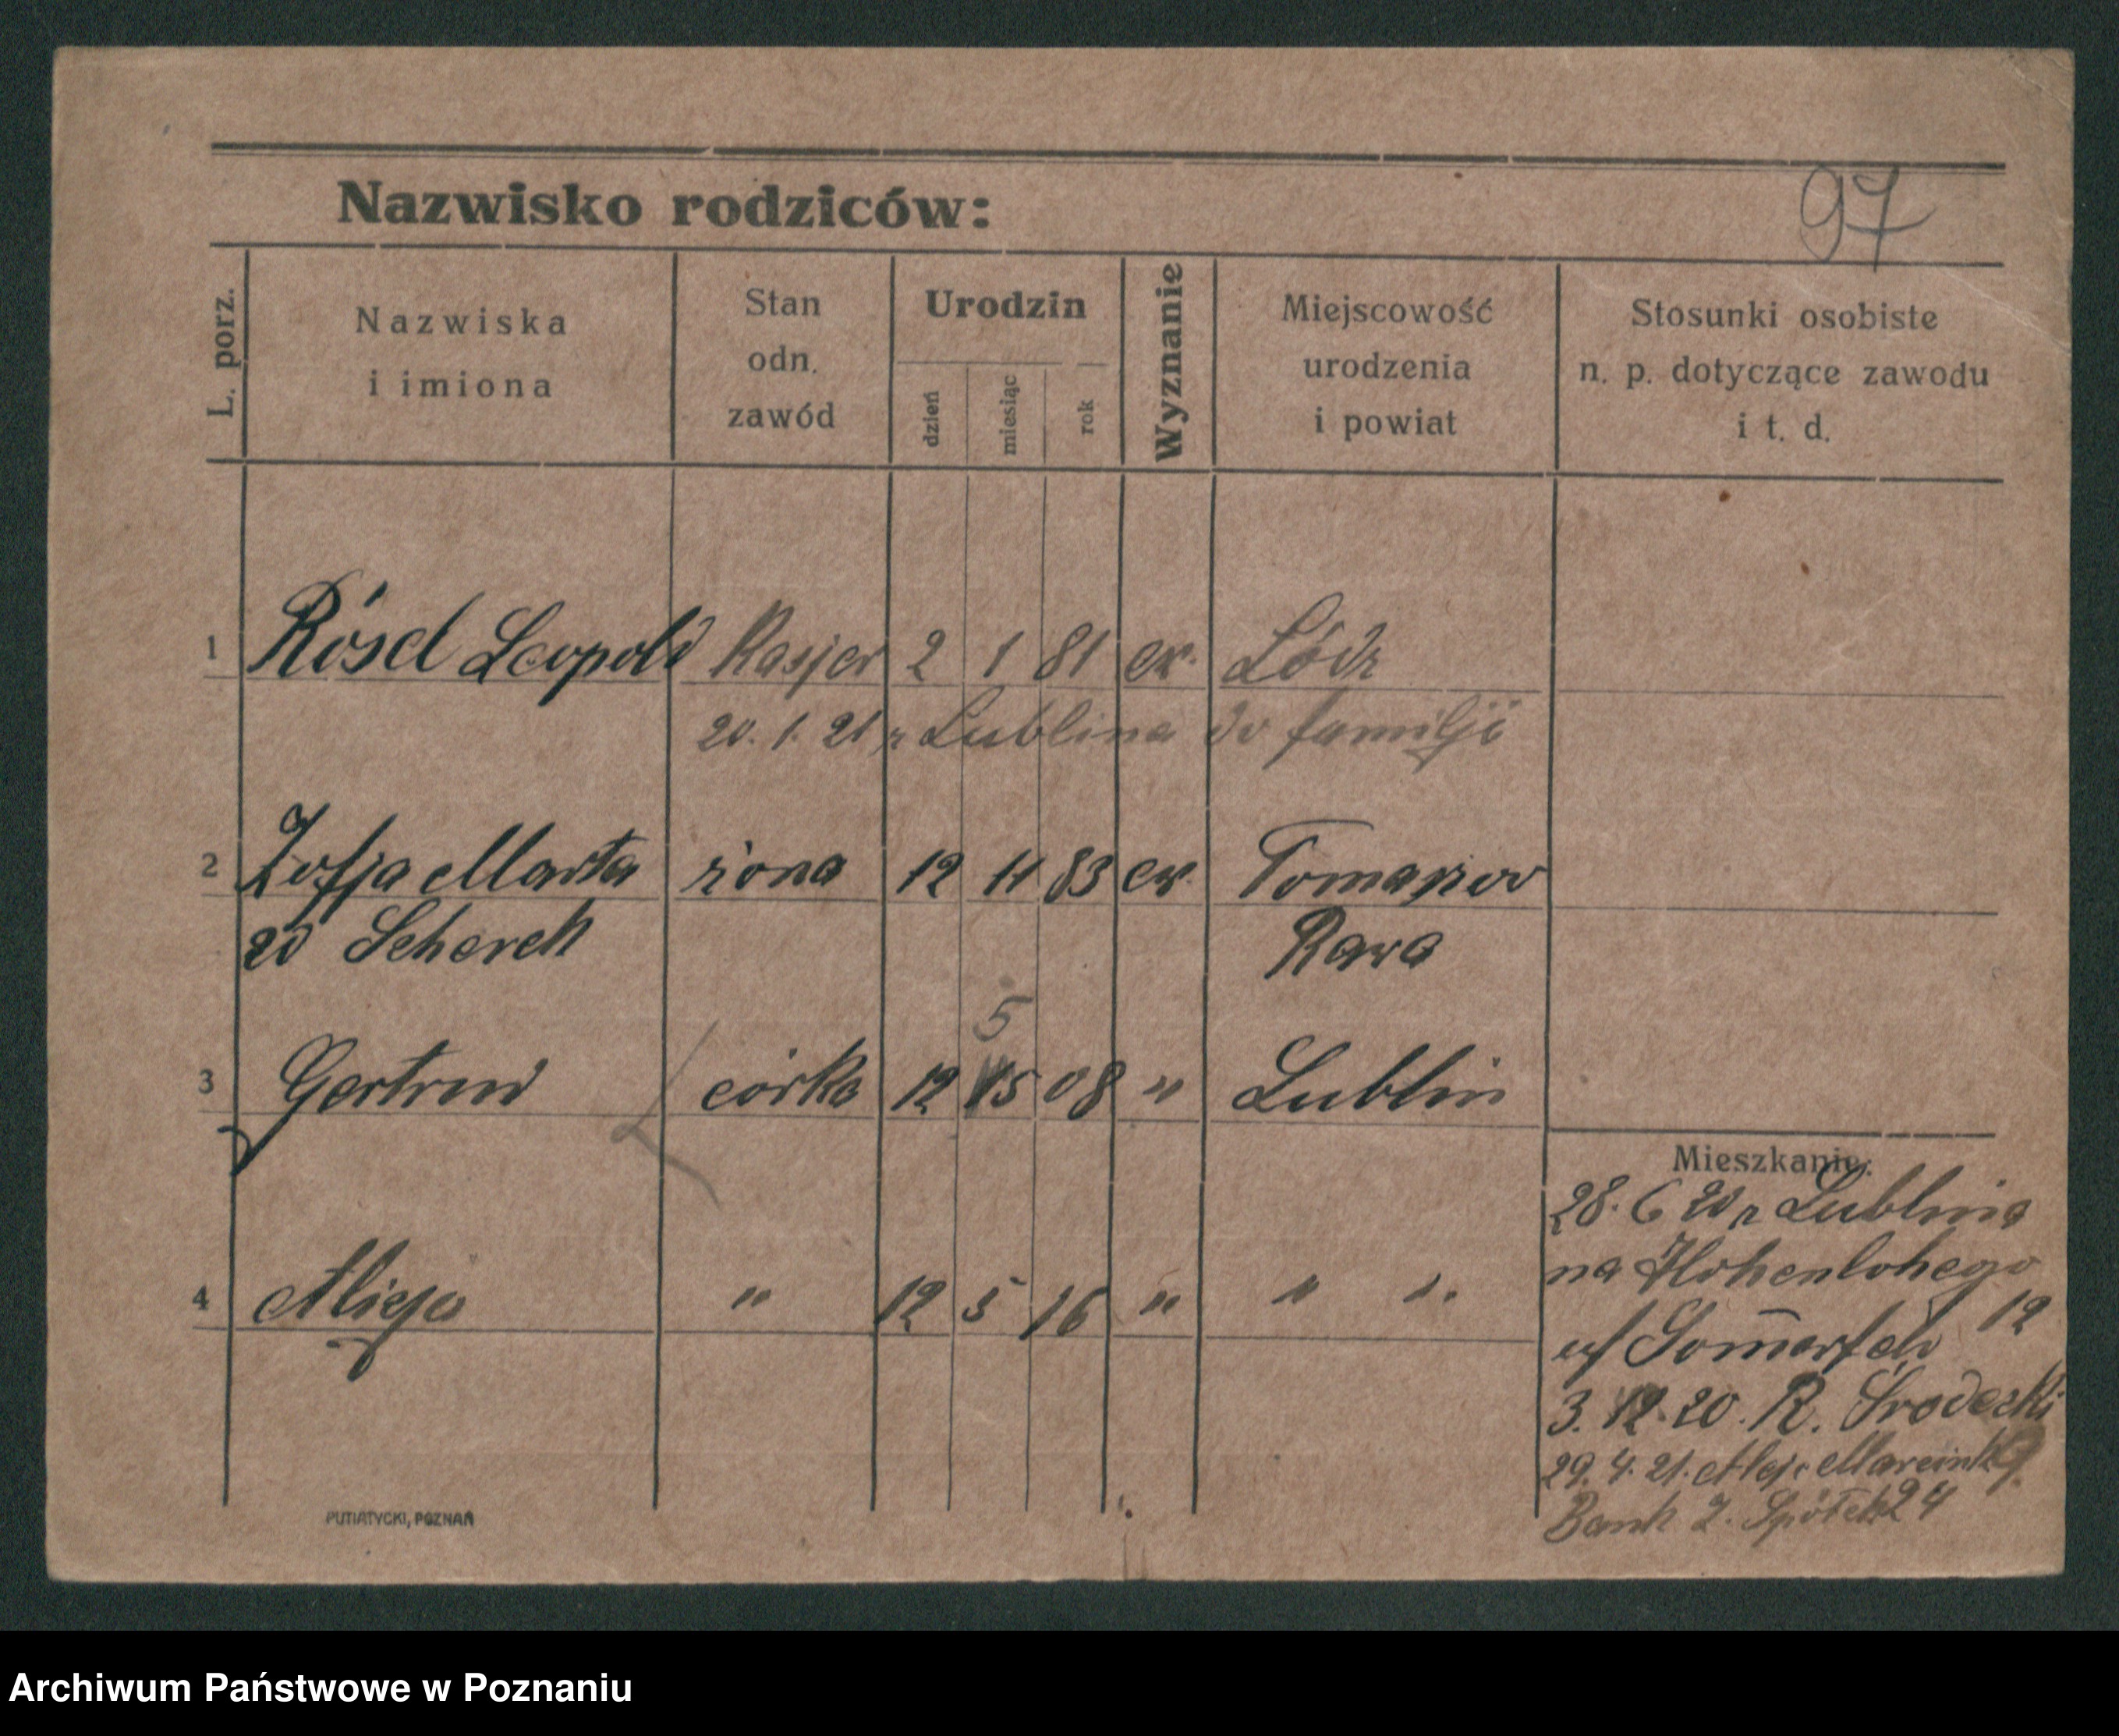 Nazwisko rodziców: 97
L. porz. Nazwiska i imiona Stan odn. zawód Urodzin dzień miesiąc rok Wyznanie Miejscowość urodzenia i powiat Stosunki osobiste n. p. dotyczące zawodu i t. d.
1 Rósel Leopold Kasjer 2 1 81 ew. Łódz
20. 1. 21 z Lublina do familji
2 Zofja Marta żona 12 11 83 ew. Tomaszow
zd Scherek Rawa
5
3 Gertrud córka 12 5 08 " Lublin
4 Alicja " 12 5 16 " " "
Mieszkanie:
28. 6 20 z Lublina
na Hohenlohego
12
Som̄erfeld
3. 12. 20. R. Śródecki
9
29. 4. 21. Alej. Marcink
Bank Z. Spółek 24
PUTIATYCKI, POZNAŃ
Archiwum Państwowe w Poznaniu